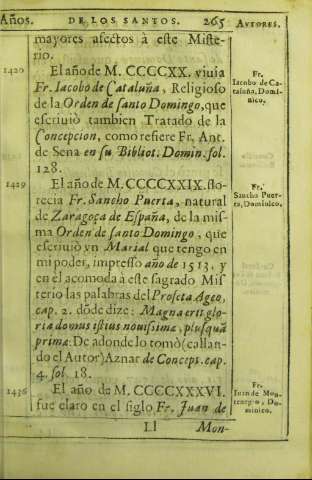 Años.
DE LOS SANTOS.
265
AVTORES.
mayores afectos à este Miste-
rio.
1420
El año de M. CCCCXX. viuia
Fr. Iacobo de Cataluña, Religioso
de la Orden de santo Domingo, que
escriuiò tambien Tratado de la
Concepcion, como refiere Fr. Ant.
de Sena en su Bibliot. Domin. fol.
128.
Fr.
Iacobo de Ca-
taluña, Domi-
nico.
1429
El año de M. CCCCXXIX. flo-
recia Fr. Sancho Puerta, natural
de Zaragoça de España, de la mis-
ma Orden de santo Domingo, que
escriuiò vn Marial que tengo en
mi poder, impresso año de 1513, y
en el acomoda à este sagrado Mis
terio las palabras del Profeta Ageo,
cap. 2. dõde dize: Magna erit glo-
ria domus istius nouissima, plusquã
prima: De adonde lo tomò (callan-
do el Autor) Aznar de Conceps. cap.
4. fol. 18.
Fr.
Sancho Puer-
ta, Dominico.
1436
El año de M. CCCCXXXVI.
fue claro en el siglo Fr. Juan de
Fr.
Iuan de Mon-
tenegro, Do-
minico.
Ll
Mon-